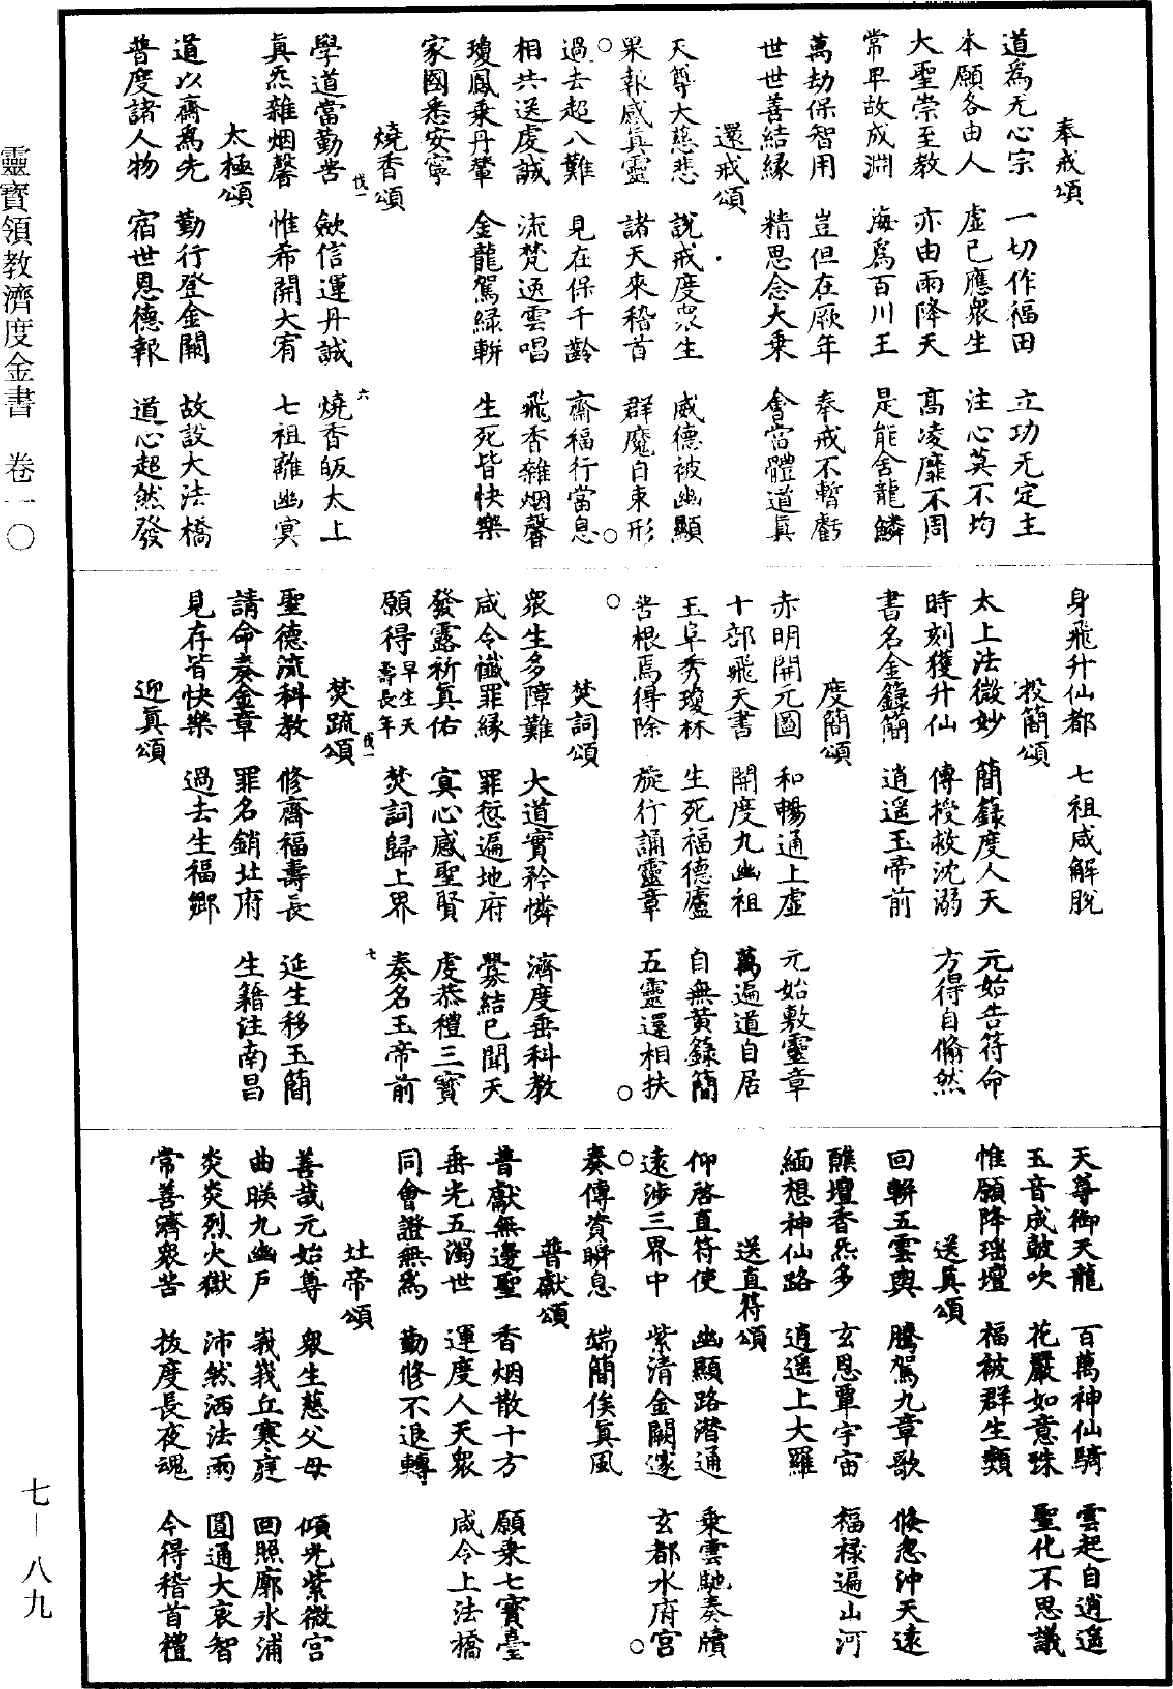 奉戒頌
道為无心宗　一切作福田　立功无定主
本願各由人　虛已應衆生　注心莫不均
大聖崇至教　亦由雨降天　髙凌靡不周
常卑故成淵　海為百川王　是能舍龍鱗
萬劫保智用　豈但在厥年　奉戒不暫虧
世世善結緣　精思念大乗　會當體道真
還戒頌
天尊大慈悲　說戒度衆生　威德被幽顯
果報感真靈　諸天來稽首　群魔自束形
過去超八難　見在保千齡　齋福行當息
相共送虔誠　流梵逐雲唱　飛香雜烟馨
瓊鳳乗丹輦　金龍駕綠軿　生死皆快樂
家國悉安寧
燒香頌
學道當勤苦　歛信運丹誠　燒香皈太上
真炁雜烟馨　惟希開大宥　七祖離幽㝠
太極頌
道以齋為先　勤行登金闕　故設大法橋
普度諸人物　宿世恩德報　道心超然發
身飛升仙都　七祖咸解脫
投簡頌
太上法微妙　簡錄度人天　元始告符命
時刻獲升仙　傳授救沈溺　方得自翛然
書名金籙簡　逍遥玉帝前
度簡頌
赤明開元圖　和暢通上虛　元始敷靈章
十部飛天書　開度九幽祖　萬遍道自居
玉阜秀瓊林　生死福德廬　自無黃籙簡
苦根焉得除　旋行誦靈章　五靈還相扶
焚詞頌
衆生多障難　大道實矜憐　濟度垂科教
咸令懺罪緣　罪愆遍地府　釁結已聞天
發露祈真佑　㝠心感聖賢　虔恭禮三寳
願得早生天壽長年　焚詞歸上界　奏名玉帝前
焚疏頌
聖德流科教　修齋福壽長　延生移玉簡
請命奏金章　罪名銷北府　生籍注南昌
見存皆快樂　過去生福鄉
迎真頌
天尊御天龍　百萬神仙騎　雲起自逍遥
玉音成鼓吹　花嚴如意珠　聖化不思議
惟願降瑶壇　福被群生類
送真頌
回軿五雲輿　騰駕九章歌　倐忽沖天遠
醮壇香炁多　玄恩覃宇宙　福祿遍山河
緬想神仙路　逍遥上大羅
送直符頌
仰啓直符使　幽顯路潜通　乗雲馳奏牘
遠涉三界中　紫清金闕邃　玄都水府宮
奏傳資瞬息　端簡俟真風
普獻頌
普獻無邊聖　香烟散十方　願乗七寳臺
垂光五濁世　運度人天衆　咸令上法橋
同會證無為　勤修不退轉
北帝頌
善哉元始尊　衆生慈父母　傾光紫微宮
曲映九幽戶　峩峩丘寒庭　回照廓氷浦
炎炎烈火獄　沛然洒法雨　圓通大哀智
常善濟衆苦　拔度長夜魂　今得稽首禮
靈寳領教濟度金書　卷一〇
七—八九